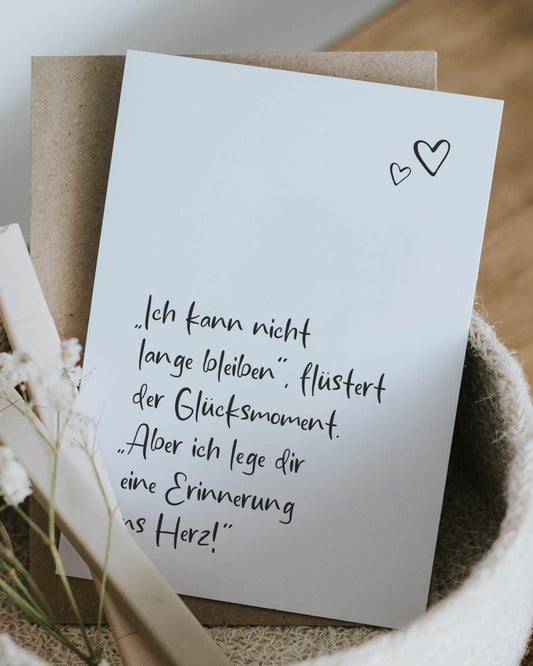 „Ich kann nicht
lange bleiben“, flüstert
der Glücksmoment.
„Aber ich lege dir
eine Erinnerung
ins Herz!“